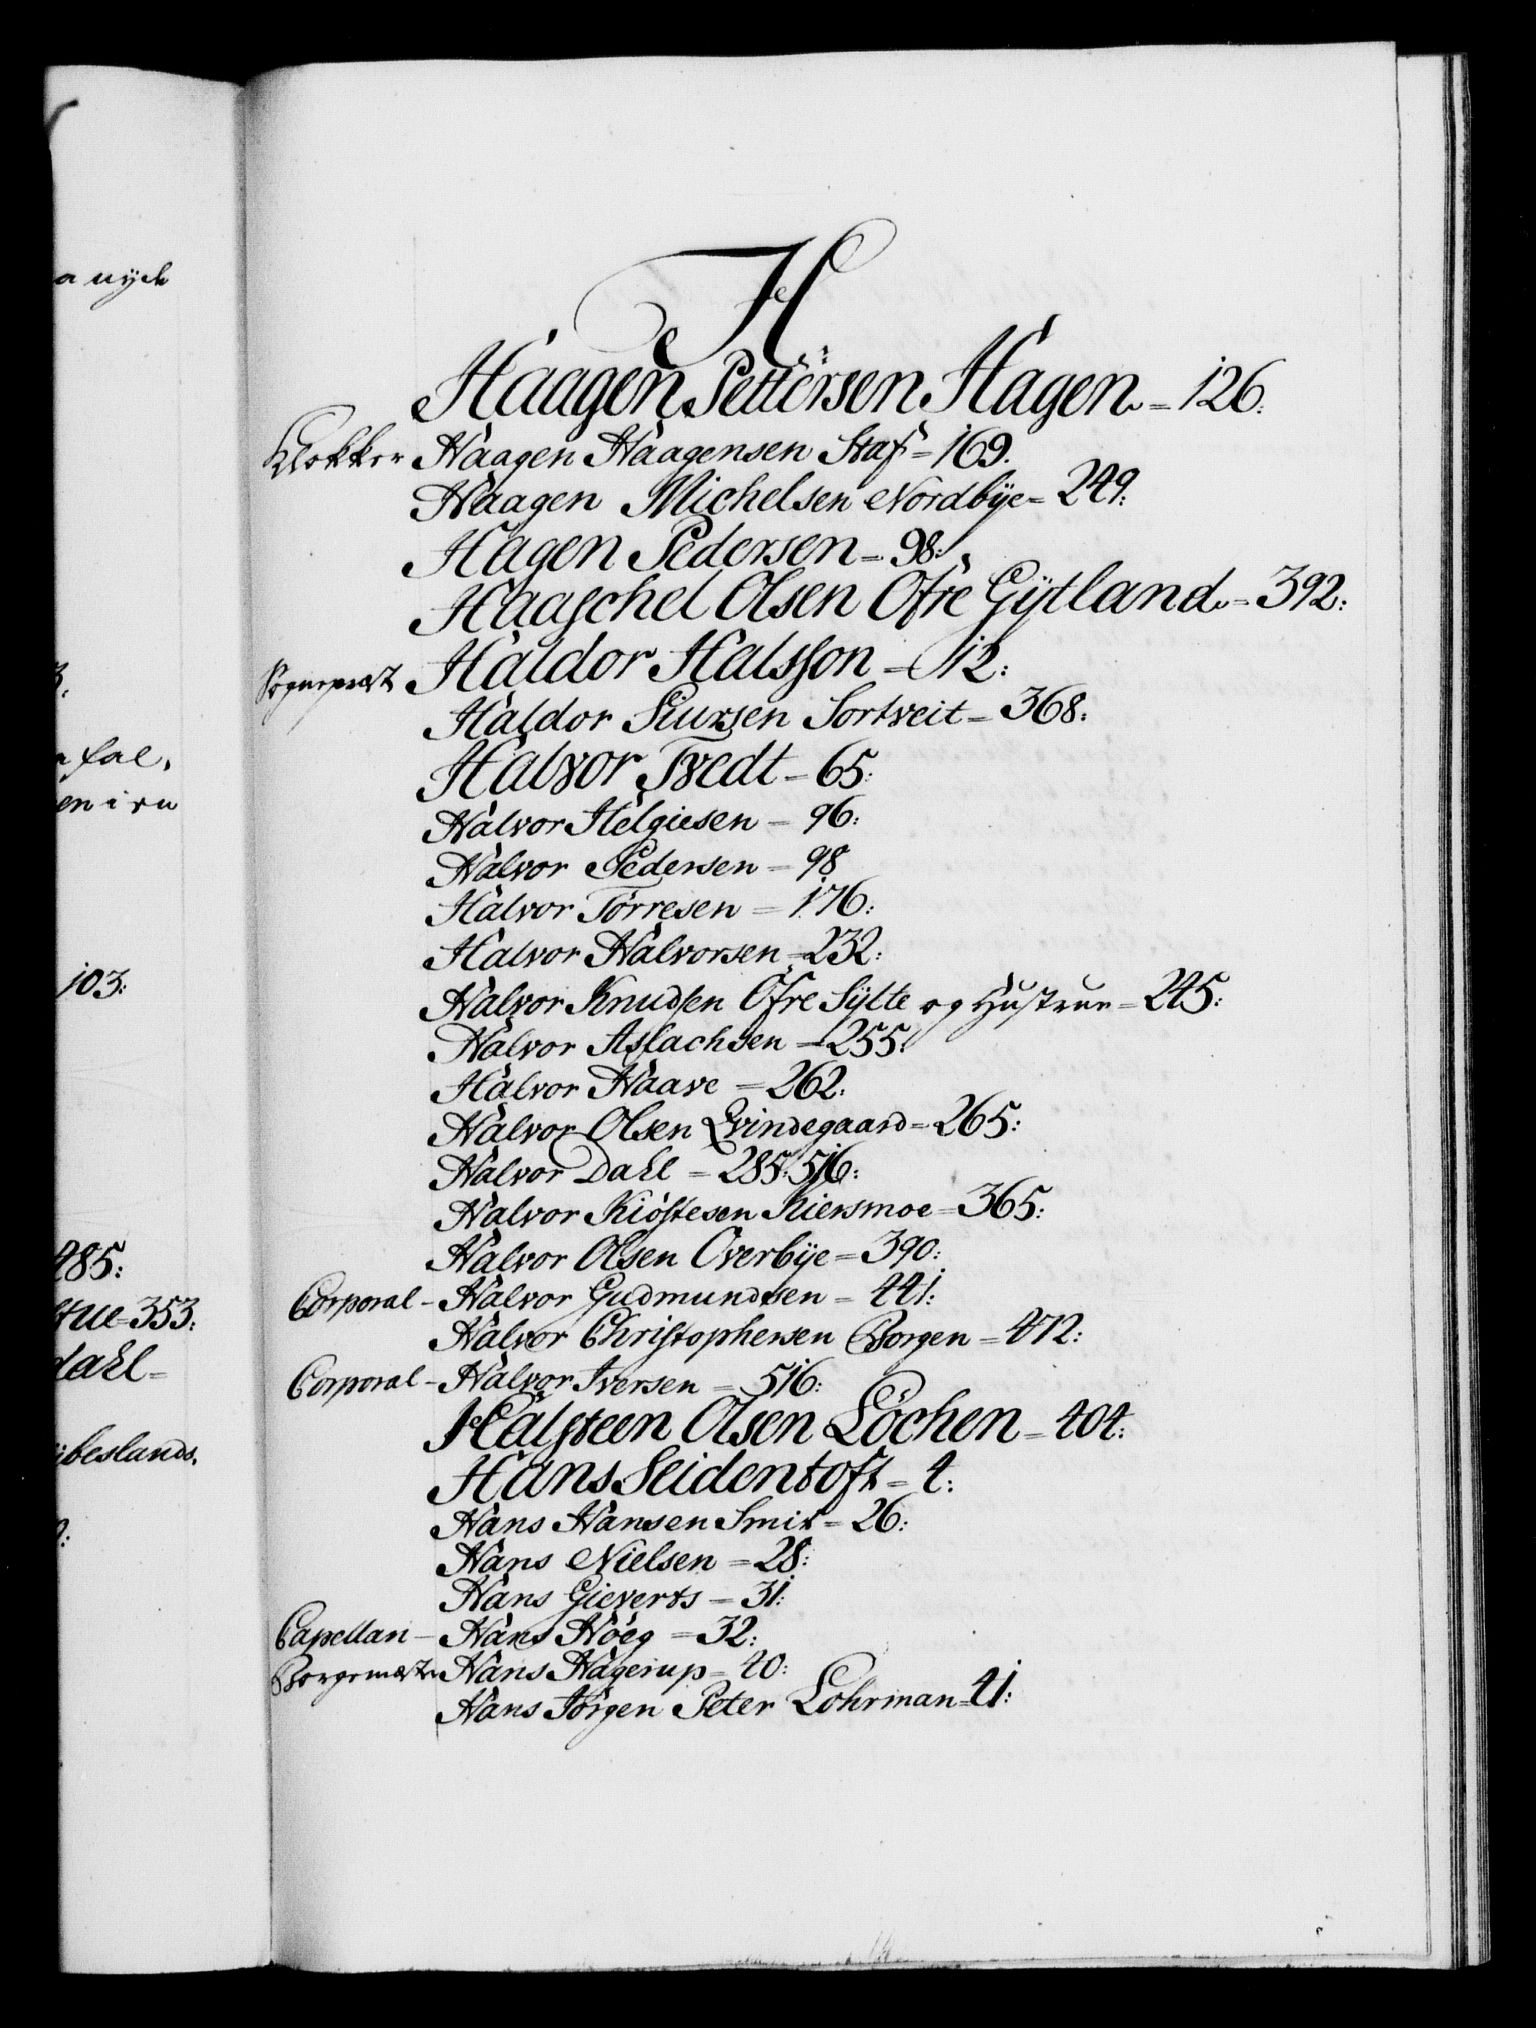 a nyeh
fal,
en i en
103:
485:
tue=353:
dahl=
ibeslands,
H
Haagen Pettersen Hagen.=126:
Klokker Haagen Haagensen Staf=169.
Haagen Michelsen Nordbÿe=249:
Hagen Pedersen=98:
Haaschel Olsen Ofre Gÿtland.=392:
Sognepræst Haldor Halsson=12:
Haldor Siursen Sortveit=368:
Halvor Tvedt=65:
Halvor Helgiesen=96:
Halvor Pedersen=98
Halvor Tørresen=176:
Halvor Halvorsen=232:
Halvor Knudsen Ofre Sÿlte og Hustrue=245:
Halvor Aslachsen=255:
Halvor Haave=262:
Halvor Olsen Qvindegaard=265:
Halvor Dahl=285:516:
Halvor Kiøstesen Kiersmoe=365:
Halvor Olsen Overbÿe=390:
Corporal-Halvor Gudmundsen=441:
Halvor Christophersen Borgen=472:
Corporal-Halvor Iversen=516:
Halsteen Olsen Løchen=404:
Hans Seidentoft=4:
Hans Hansen Smit=26:
Hans Nielsen=28:
Hans Gieverts=31:
Capellan-Hans Høeg=32:
Borgemæster Hans Hagerup=40:
Hans Jørgen Peter Lohrman=41: